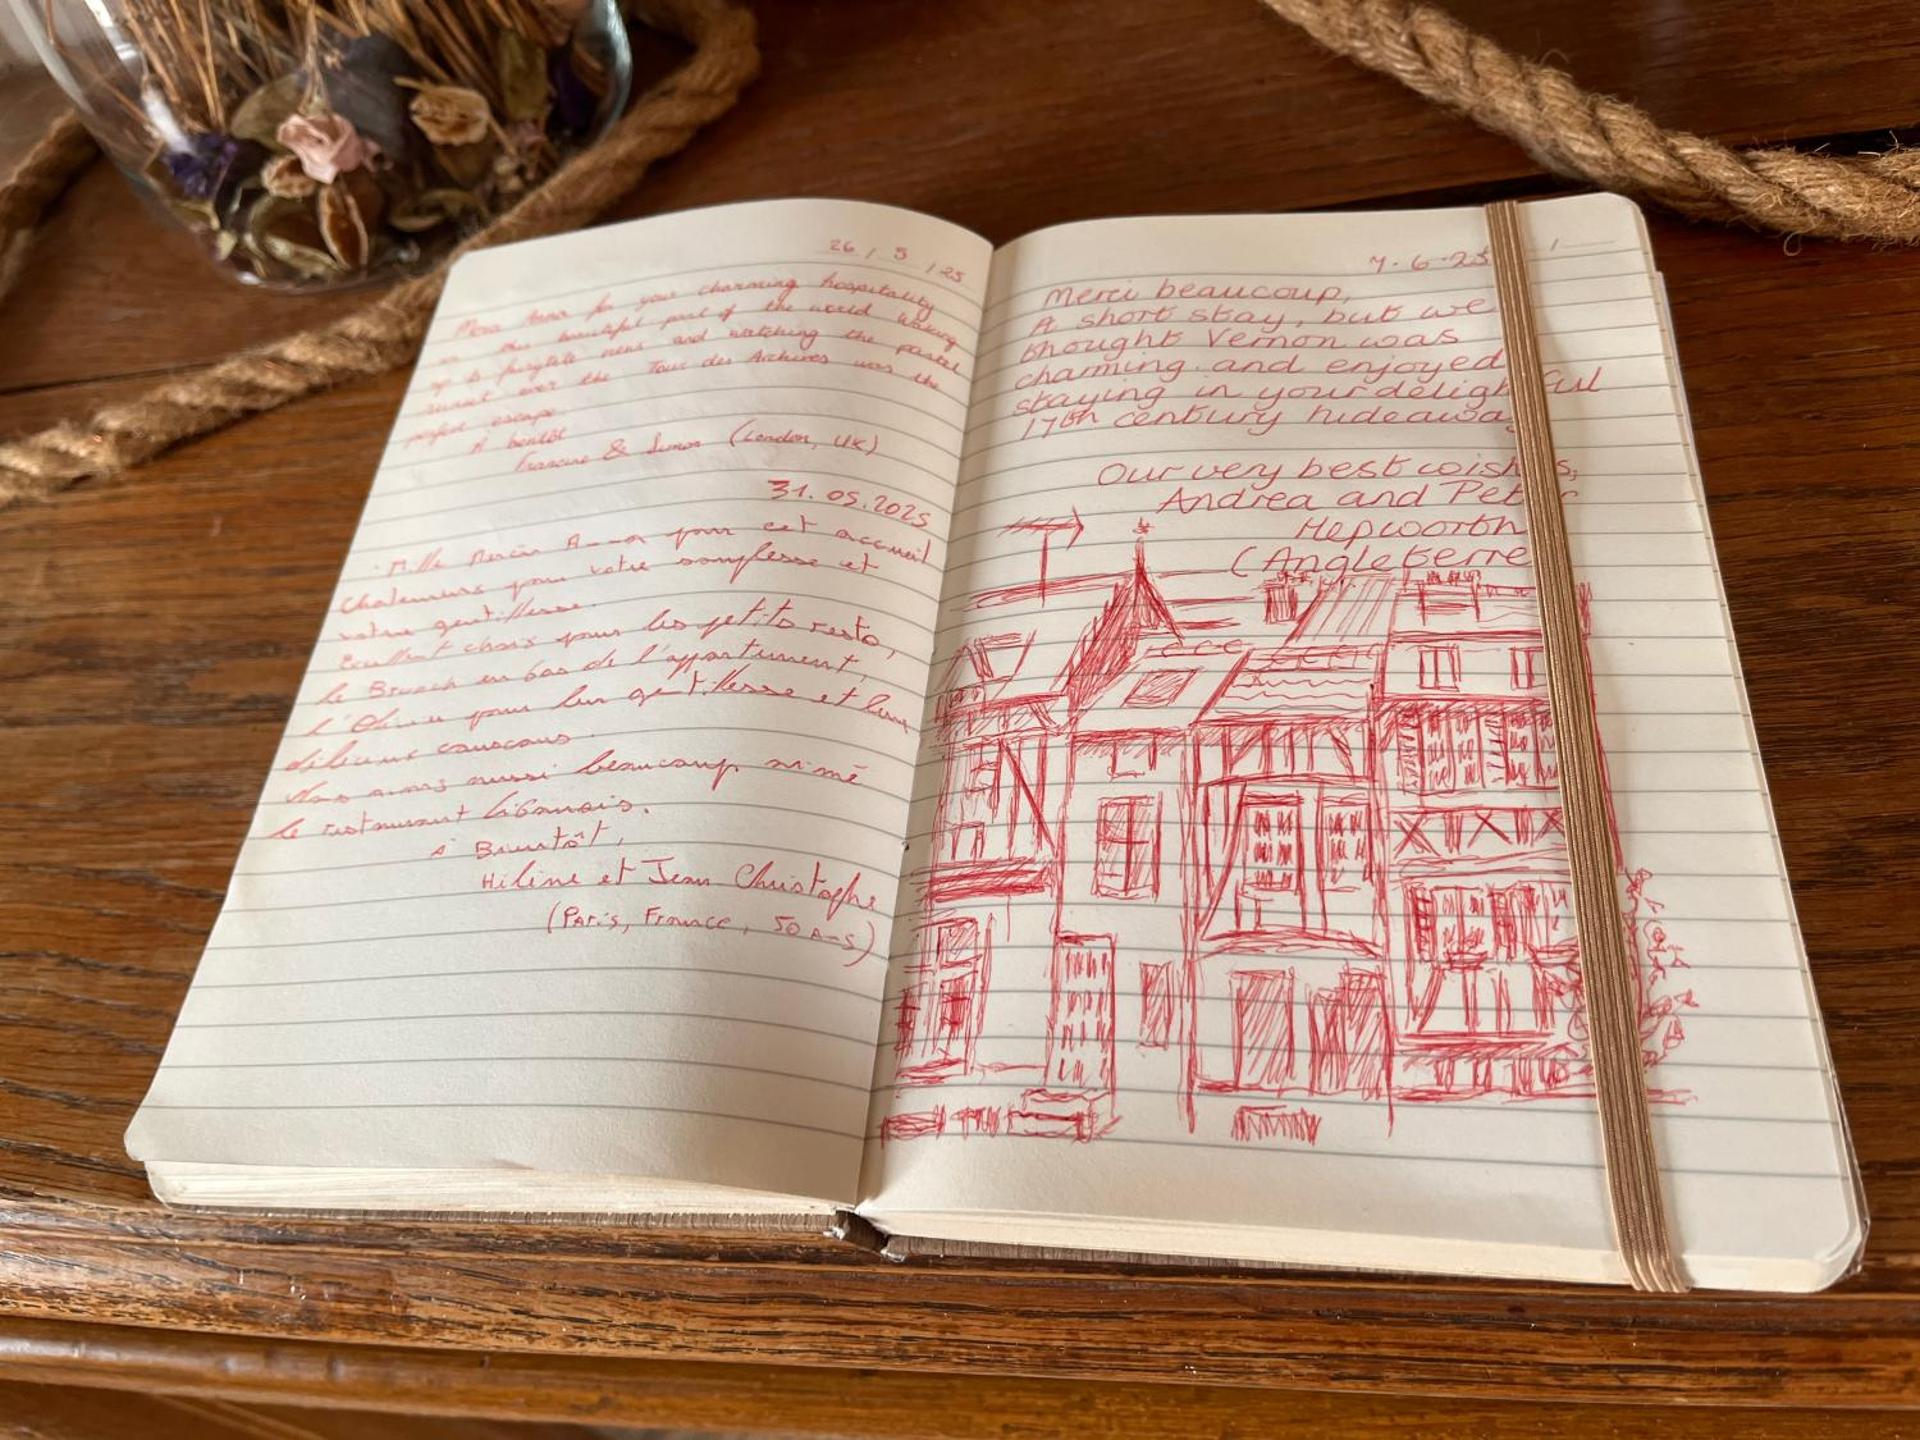 26 / 5 / 25
Merci Anna for your charming hospitality
in this beautiful part of the world. Waking
up to fairytale views and watching the pastel
sunset over the Tour des Archives was the
perfect escape.
A bientôt
Francine & Simon (London, UK)
31.05.2025
Mille Mercis Anna pour cet accueil
chaleureux pour votre souplesse et
votre gentillesse.
Excellent choix pour les petits resto,
le Brunch en bas de l'appartement,
pour leur gentillesse et leur
délicieux couscous.
Nous avons aussi beaucoup aimé
le restaurant libanais.
A Bientôt,
Hélène et Jean Christophe
(Paris, France, 50 ans)
7.6.25
Merci beaucoup,
A short stay, but we
thought Vernon was
charming and enjoyed
staying in your delightful
17th century hideaway
Our very best wishes,
Andrea and Peter
Hepworth
(Angleterre